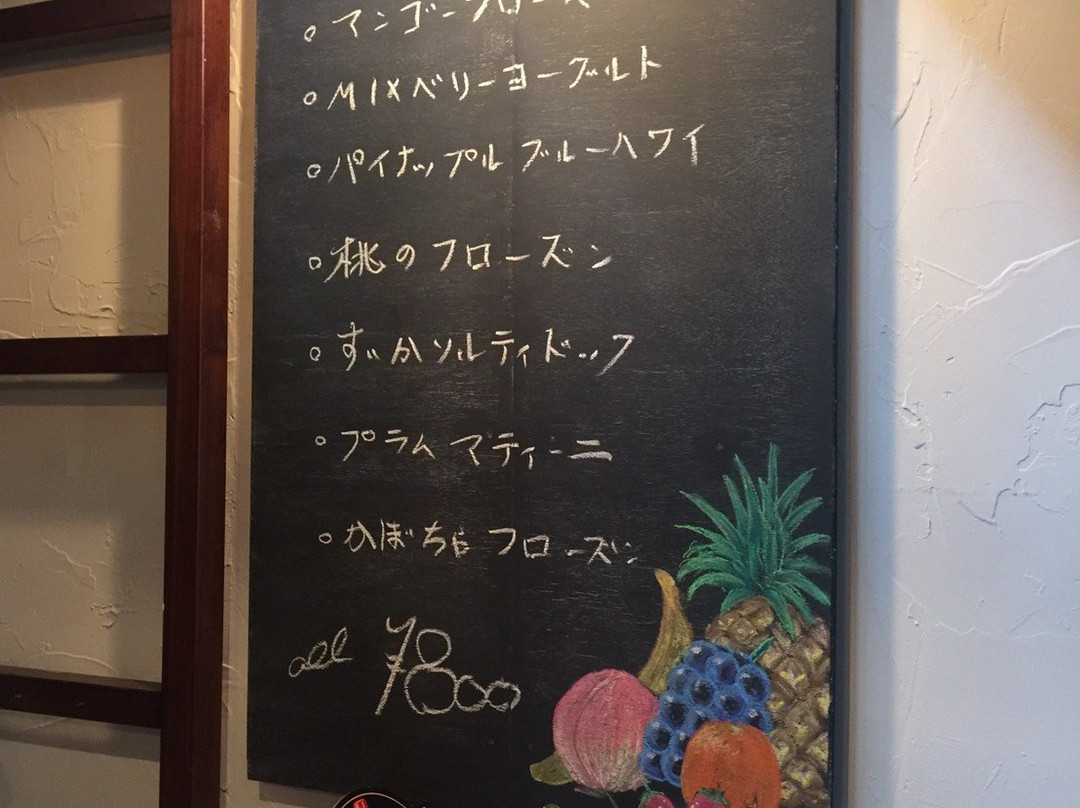 。マンゴーフローズ
。MIXベリーヨーグルト
。パイナップルブルーハワイ
。桃のフローズン
。すいかソルティドック
。プラムマティーニ
。かぼちゃフローズン
all ¥800